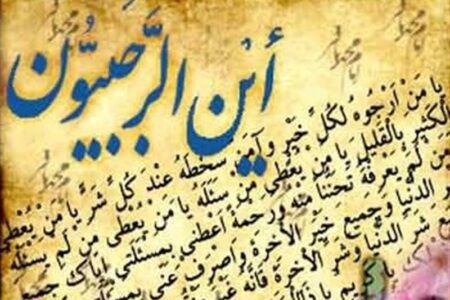 أَيْنَ الرَّجَبِيُّون
يا مَنْ أَرْجُوهُ لِكُلِّ خَيْرٍ وَآمَنُ سَخَطَهُ عِنْدَ كُلِّ شَرٍّ يا مَنْ يُعْطِي
الْكَثِيرَ بِالْقَلِيلِ يا مَنْ يُعْطِي مَنْ سَئَلَهُ يا مَنْ يُعْطِي مَنْ لَمْ يَسْئَلْهُ
وَمَنْ لَمْ يَعْرِفْهُ تَحَنُّناً مِنْهُ وَرَحْمَةً أَعْطِنِي بِمَسْئَلَتِي إِيَّاكَ جَمِيعَ
خَيْرِ الدُّنْيا وَجَمِيعَ خَيْرِ الْآخِرَةِ وَاصْرِفْ عَنِّي بِمَسْئَلَتِي
شَرِّ الدُّنْيا وَشَرِّ الْآخِرَةِ فَإِنَّهُ
يا كَرِيمُ